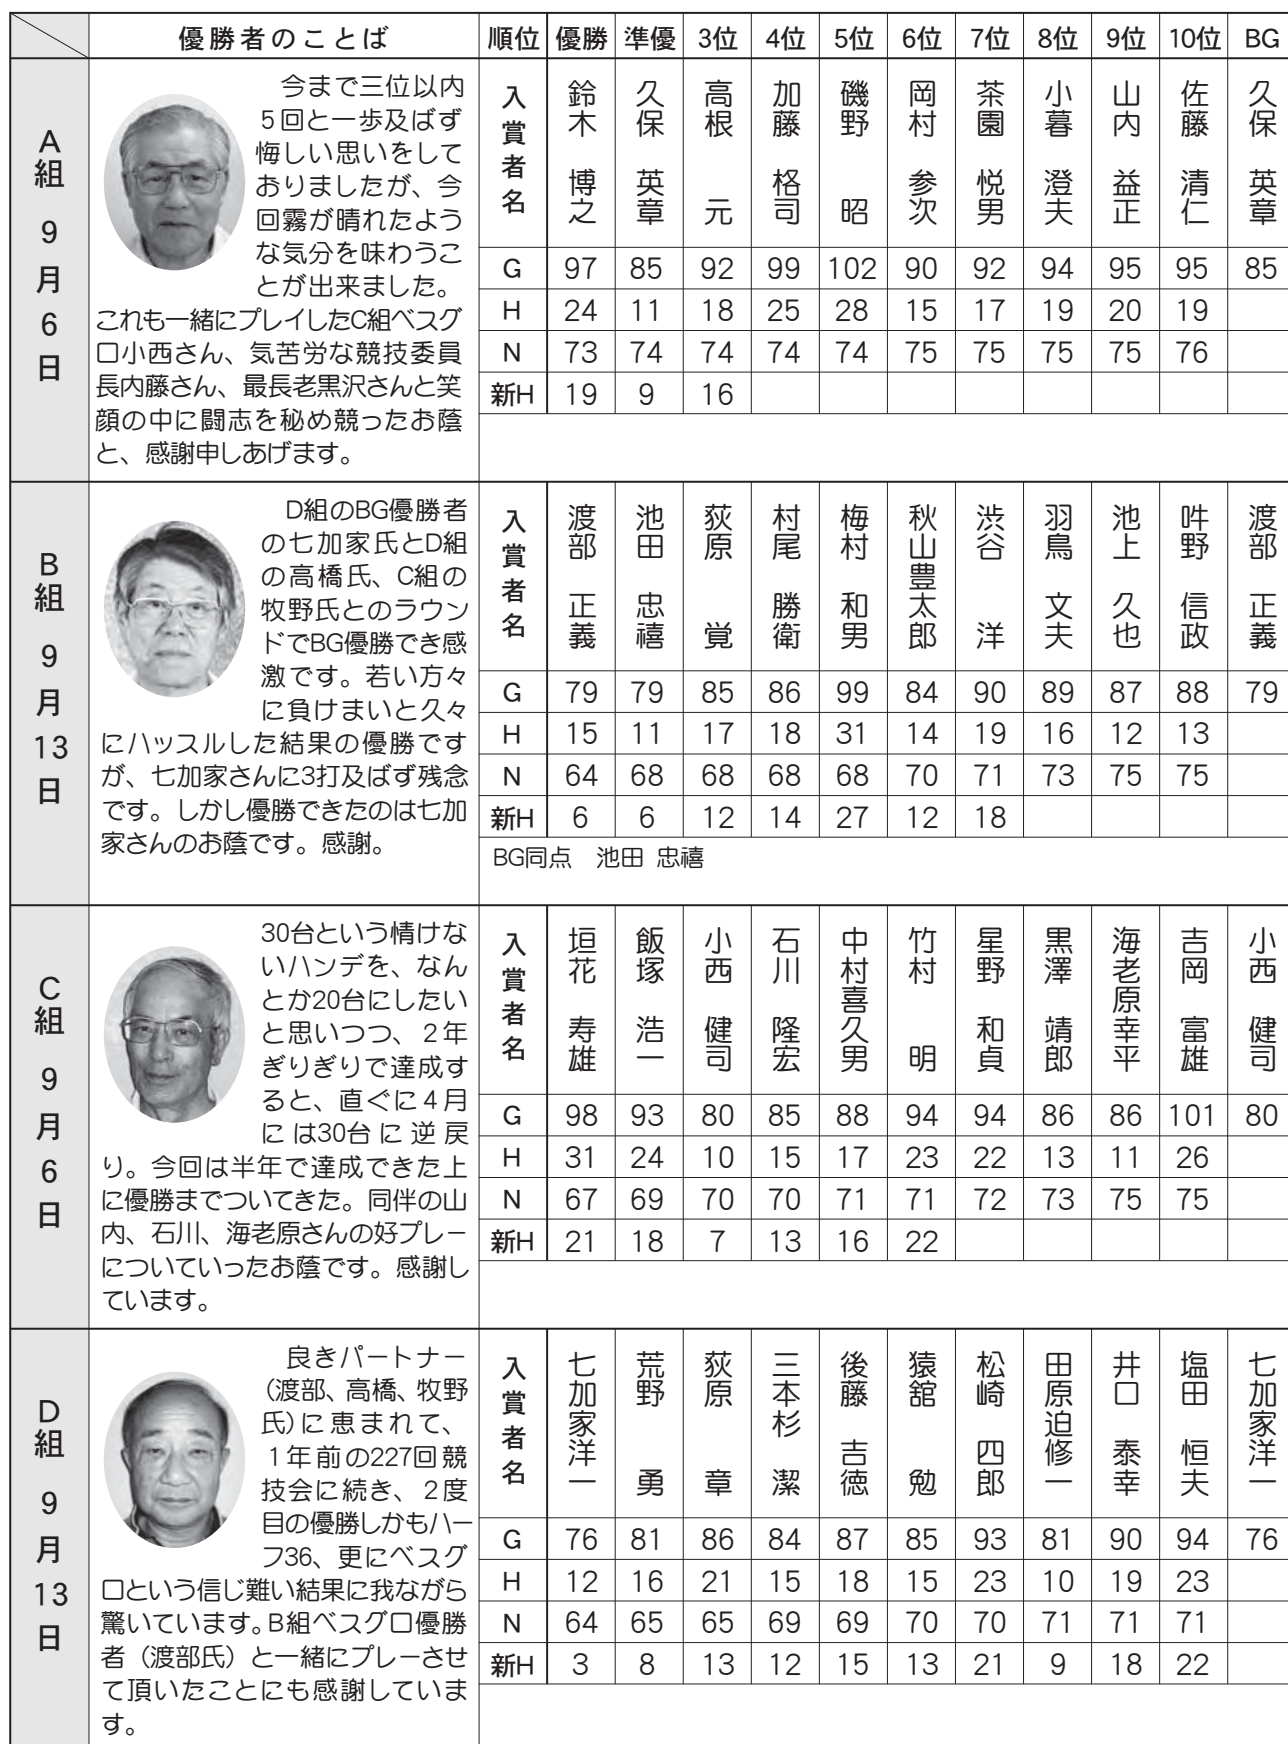 優勝者のことば 順位 優勝 準優 3位 4位 5位 6位 7位 8位 9位 10位 BG
A組 9月6日
今まで三位以内
5回と一歩及ばず
悔しい思いをして
おりましたが、今
回霧が晴れたよう
な気分を味わうこ
とが出来ました。
これも一緒にプレイしたC組ベスグ
ロ小西さん、気苦労な競技委員
長内藤さん、最長老黒沢さんと笑
顔の中に闘志を秘め競ったお蔭
と、感謝申しあげます。
入賞者名 鈴木 博之 久保 英章 高根 元 加藤 格司 磯野 昭 岡村 参次 茶園 悦男 小暮 澄夫 山内 益正 佐藤 清仁 久保 英章
G 97 85 92 99 102 90 92 94 95 95 85
H 24 11 18 25 28 15 17 19 20 19
N 73 74 74 74 74 75 75 75 75 76
新H 19 9 16
B組 9月13日
D組のBG優勝者
の七加家氏とD組
の高橋氏、C組の
牧野氏とのラウン
ドでBG優勝でき感
激です。若い方々
に負けまいと久々
にハッスルした結果の優勝です
が、七加家さんに3打及ばず残念
です。しかし優勝できたのは七加
家さんのお蔭です。感謝。
入賞者名 渡部 正義 池田 忠禧 荻原 覚 村尾 勝衛 梅村 和男 秋山豊太郎 渋谷 洋 羽鳥 文夫 池上 久也 吽野 信政 渡部 正義
G 79 79 85 86 99 84 90 89 87 88 79
H 15 11 17 18 31 14 19 16 12 13
N 64 68 68 68 68 70 71 73 75 75
新H 6 6 12 14 27 12 18
BG同点 池田 忠禧
C組 9月6日
30台という情けな
いハンデを、なん
とか20台にしたい
と思いつつ、2年
ぎりぎりで達成す
ると、直ぐに4月
には30台に逆戻
り。今回は半年で達成できた上
に優勝までついてきた。同伴の山
内、石川、海老原さんの好プレー
についていったお蔭です。感謝し
ています。
入賞者名 垣花 寿雄 飯塚 浩一 小西 健司 石川 隆宏 中村喜久男 竹村 明 星野 和貞 黒澤 靖郎 海老原幸平 吉岡 富雄 小西 健司
G 98 93 80 85 88 94 94 86 86 101 80
H 31 24 10 15 17 23 22 13 11 26
N 67 69 70 70 71 71 72 73 75 75
新H 21 18 7 13 16 22
D組 9月13日
良きパートナー
(渡部、高橋、牧野
氏)に恵まれて、
1年前の227回競
技会に続き、2度
目の優勝しかもハー
フ36、更にベスグ
ロという信じ難い結果に我ながら
驚いています。B組ベスグロ優勝
者（渡部氏）と一緒にプレーさせ
て頂いたことにも感謝していま
す。
入賞者名 七加家洋一 荒野 勇 荻原 章 三本杉 潔 後藤 吉徳 猿舘 勉 松崎 四郎 田原迫修一 井口 泰幸 塩田 恒夫 七加家洋一
G 76 81 86 84 87 85 93 81 90 94 76
H 12 16 21 15 18 15 23 10 19 23
N 64 65 65 69 69 70 70 71 71 71
新H 3 8 13 12 15 13 21 9 18 22